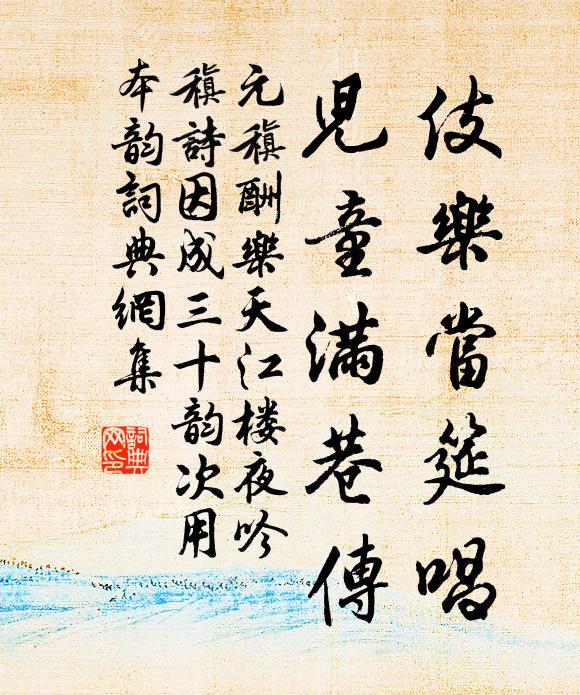 伎樂當筵唱
兒童滿巷傳
元稹酬樂天江楼夜吟
稹詩因成三十韵次用
本韵詞典網集
詞典网印